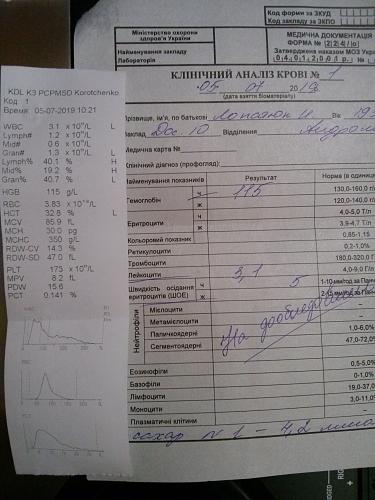 KDL K3 PCPM5D Korotchenko
Код: 1
Время: 05-07-2019 10:21
WBC 3.1 x 10⁹/L L
Lymph# 1.2 x 10⁹/L
Mid# 0.6 x 10⁹/L
Gran# 1.3 x 10⁹/L L
Lymph% 40.1 % H
Mid% 19.2 % H
Gran% 40.7 % L
HGB 115 g/L
RBC 3.83 x 10¹²/L
HCT 32.8 % L
MCV 85.9 fL
MCH 30.0 pg
MCHC 350 g/L
RDW-CV 14.3 %
RDW-SD 47.0 fL
PLT 173 x 10⁹/L
MPV 8.2 fL
PDW 15.6
PCT 0.141 %
WBC
RBC
PLT
Код форми за ЗКУД
Код закладу за ЗКПО
Міністерство охорони
здоров'я України
Найменування закладу
Лабораторія
МЕДИЧНА ДОКУМЕНТАЦІЯ
ФОРМА № 224/о
Затверджена наказом МОЗ Украї
04.01.2001р. №
КЛІНІЧНИЙ АНАЛІЗ КРОВІ № 1
05 07 2019
(дата взяття біоматеріалу)
Прізвище, ім'я, по батькові
Заклад Відділення
Медична карта №
Клінічний діагноз (профогляд):
Найменування показників Результат Норма (в одиниц
Гемоглобін ч 115 130,0-160,0 г/л
ж 120,0-140,0 г/л
Еритроцити ч 4,0-5,0 Т/л
ж 3,9-4,7 Т/л
Кольоровий показник 0,85-1,15
Ретикулоцити 0,2-1,0%
Тромбоцити 180,0-320,0 Г
Лейкоцити 3,1 4,0-9,0 Г/л
Швидкість осідання еритроцитів (ШОЕ) ч 5 1-10 мм/год за Панч
ж 2-15 мм/год за Панч
Нейтрофіли
Мієлоцити
Метамієлоцити
Паличкоядерні 1,0-6,0%
Сегментоядерні 47,0-72,0%
на дообстеженні
Еозинофіли 0,5-5,0%
Базофіли 0-1,0%
Лімфоцити 19,0-37,0
Моноцити 3,0-11,0
Плазматичні клітини
сахар N 1 – 4,2